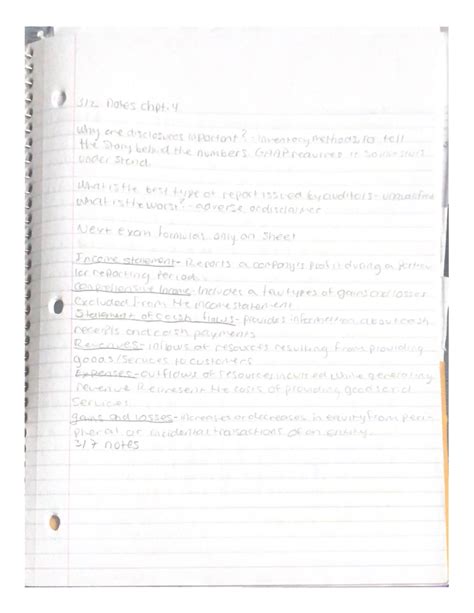 3/2 Notes Chpt. 4
Why are disclosures important? - Inventory methods, to tell
the story behind the numbers. GAAP requires it so investors
understand
What is the best type of report issued by auditors -
What is the worst? - adverse or disclaimer
Next Exam formulas only on Sheet
Income statement - Reports a company's profit during a
lar reporting period.
comprehensive Income - Includes a few types of gains and losses
excluded from the income statement
Statement of cash flows - provides information about cash
receipts and cash payments
Revenues - inflows of resources resulting from providing
goods/services to customers
Expenses - outflows of resources incurred while generating
revenue Represent the costs of providing goods and
services
gains and losses - increases or decreases in equity from peri-
pheral or incidental transactions of an entity.
3/7 notes